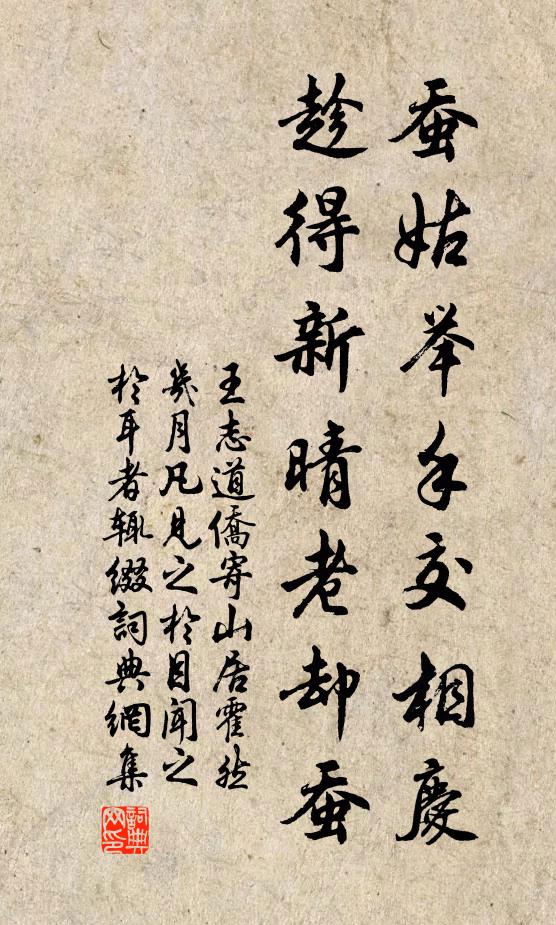 蚕姑举手交相慶
趁得新晴老却蚕
王志道僑寄山居霍然
几月凡見之於目闻之
於耳者辄缀詞典網集
詞典
网印